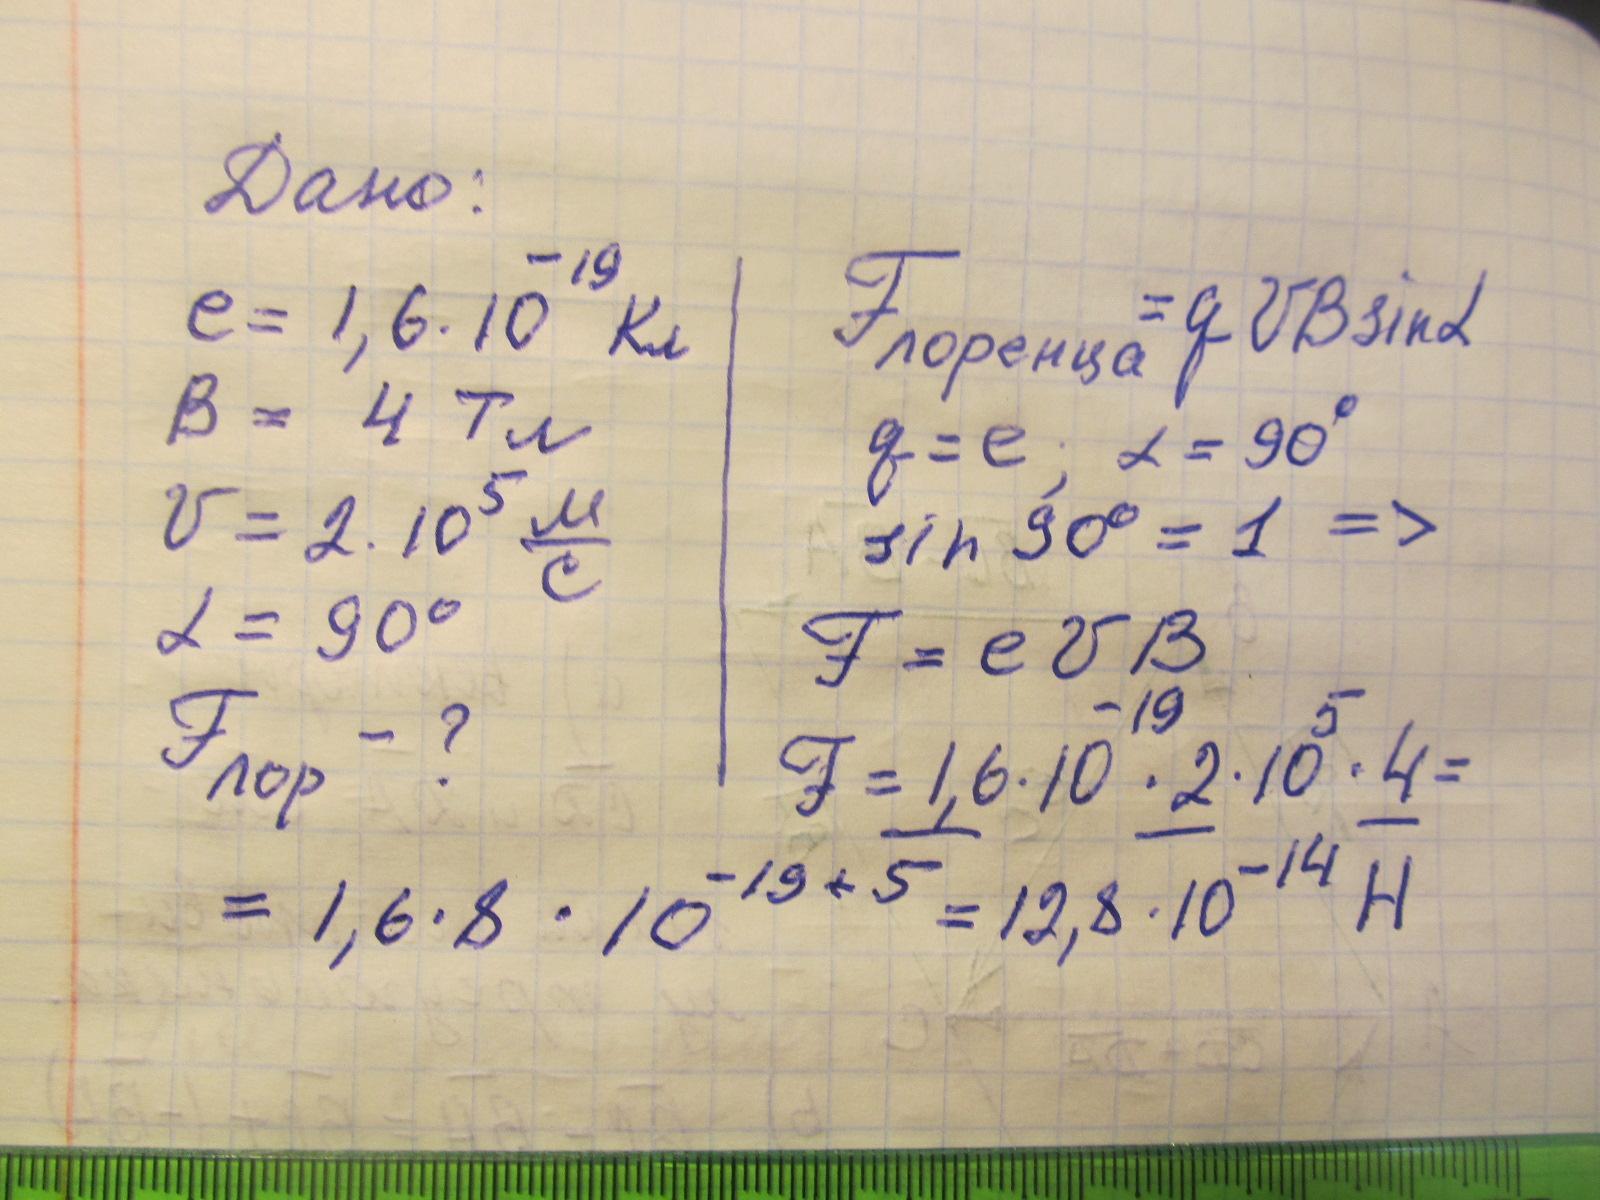 Дано:
e = 1,6·10⁻¹⁹ Кл
B = 4 Тл
v = 2·10⁵ м/с
α = 90°
Fлор - ?
Fлоренца = qvBsinα
q = e; α = 90°
sin 90° = 1 =>
F = evB
F = 1,6·10⁻¹⁹·2·10⁵·4 =
= 1,6·8·10⁻¹⁹⁺⁵ = 12,8·10⁻¹⁴ Н